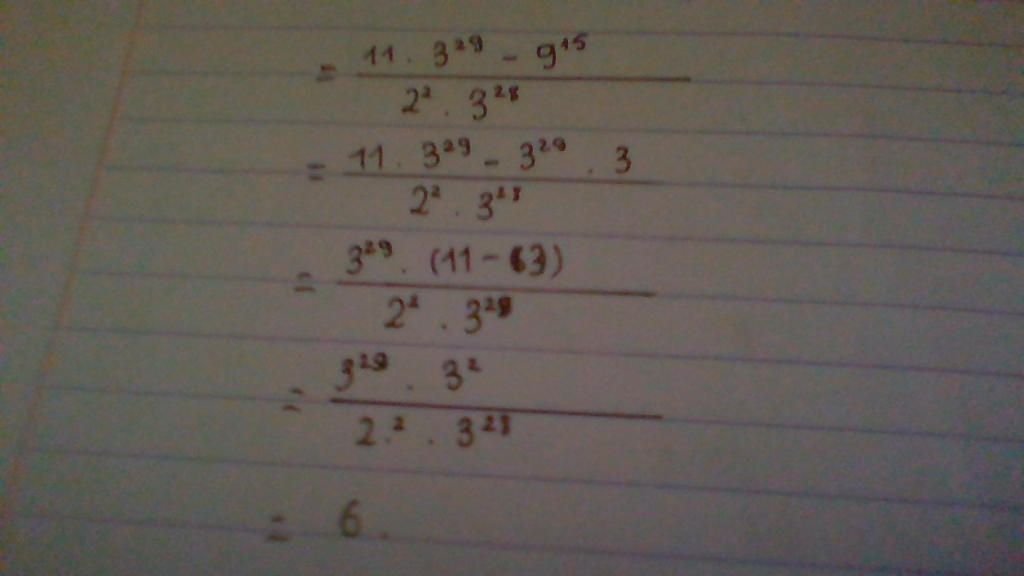 = (11 . 3²⁹ - 9¹⁵) / (2² . 3²⁸)
= (11 . 3²⁹ - 3²⁹ . 3) / (2² . 3²⁸)
= (3²⁹ . (11 - 3)) / (2² . 3²⁸)
= (3²⁹ . 3²) / (2.² . 3²⁸)
= 6.